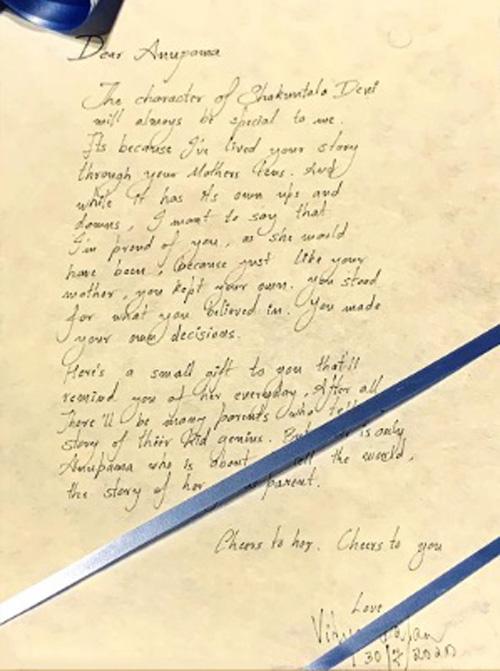 Dear Anupama
The character of Shakuntala Devi
will always be special to me.
Its because I've lived your story
through your Mothers lens. And
while it has its own ups and
downs, I want to say that
I'm proud of you, as she would
have been, because just like your
mother, you kept your own. You stood
for what you believed in. You made
your own decisions.
Here's a small gift to you that'll
remind you of her everyday. After all
There'll be many parents who
story of their kid genius. is only
Anupama who is about the world,
the story of her parent.
Cheers to her. Cheers to you
Love
30/7/2020